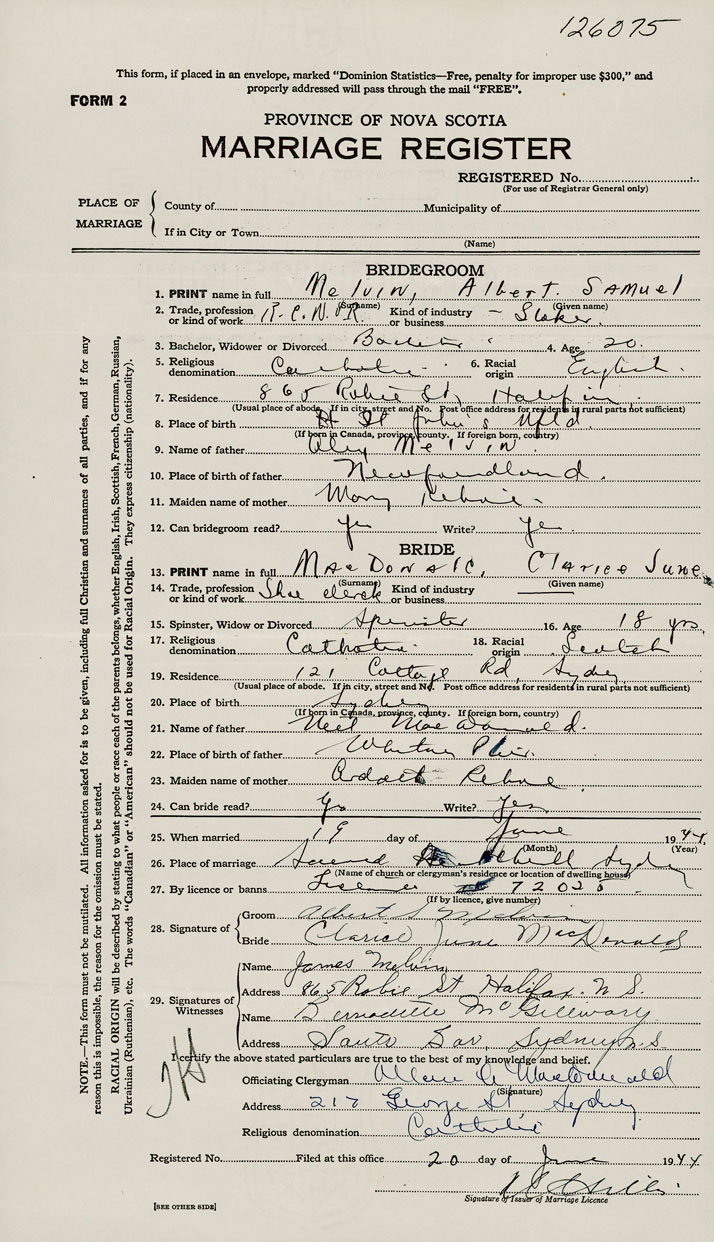 126075
This form, if placed in an envelope, marked "Dominion Statistics—Free, penalty for improper use $300," and
properly addressed will pass through the mail "FREE".
FORM 2
PROVINCE OF NOVA SCOTIA
MARRIAGE REGISTER
REGISTERED No.
(For use of Registrar General only)
PLACE OF MARRIAGE
County of Municipality of
If in City or Town
(Name)
NOTE.—This form must not be mutilated. All information asked for is to be given, including full Christian and surnames of all parties, and if for any
reason this is impossible, the reason for the omission must be stated.
RACIAL ORIGIN will be described by stating to what people or race each of the parents belongs, whether English, Irish, Scottish, French, German, Russian,
Ukrainian (Ruthenian), etc. The words "Canadian" or "American" should not be used for Racial Origin. They express citizenship (nationality).
BRIDEGROOM
1. PRINT name in full Melvin, Albert Samuel
(Surname) (Given name)
2. Trade, profession or kind of work R.C.N.V.R. Kind of industry or business - Stoker.
3. Bachelor, Widower or Divorced Bachelor 4. Age 20.
5. Religious denomination Catholic 6. Racial origin English.
7. Residence 865 Robie St, Halifax
(Usual place of abode. If in city, street and No. Post office address for residents in rural parts not sufficient)
8. Place of birth St John's Nfld.
(If born in Canada, province, county. If foreign born, country)
9. Name of father Melvin.
10. Place of birth of father Newfoundland.
11. Maiden name of mother Mary
12. Can bridegroom read? Yes Write? Yes.
BRIDE
13. PRINT name in full MacDonald, Clarice June
(Surname) (Given name)
14. Trade, profession or kind of work clerk Kind of industry or business
15. Spinster, Widow or Divorced Spinster 16. Age 18 yrs.
17. Religious denomination Catholic 18. Racial origin Scotch
19. Residence 121 Cottage Rd, Sydney
(Usual place of abode. If in city, street and No. Post office address for residents in rural parts not sufficient)
20. Place of birth Sydney
(If born in Canada, province, county. If foreign born, country)
21. Name of father Neil MacDonald.
22. Place of birth of father Whitney Pier.
23. Maiden name of mother
24. Can bride read? Yes Write? Yes
25. When married 19 day of June 1944.
(Month) (Year)
26. Place of marriage Sacred Sydney
(Name of church or clergyman's residence or location of dwelling house)
27. By licence or banns License 72025
(If by licence, give number)
28. Signature of
Groom Albert S Melvin
Bride Clarice June MacDonald
29. Signatures of Witnesses
Name James Melvin
Address 865 Robie St Halifax. N.S.
Name Bernadette McGillivary
Address Bar, Sydney N.S
I certify the above stated particulars are true to the best of my knowledge and belief.
Officiating Clergyman MacDonald
(Signature)
Address 217 George St Sydney
Religious denomination Catholic
Registered No. Filed at this office 20 day of June 1944
Signature of Issuer of Marriage Licence
[SEE OTHER SIDE]